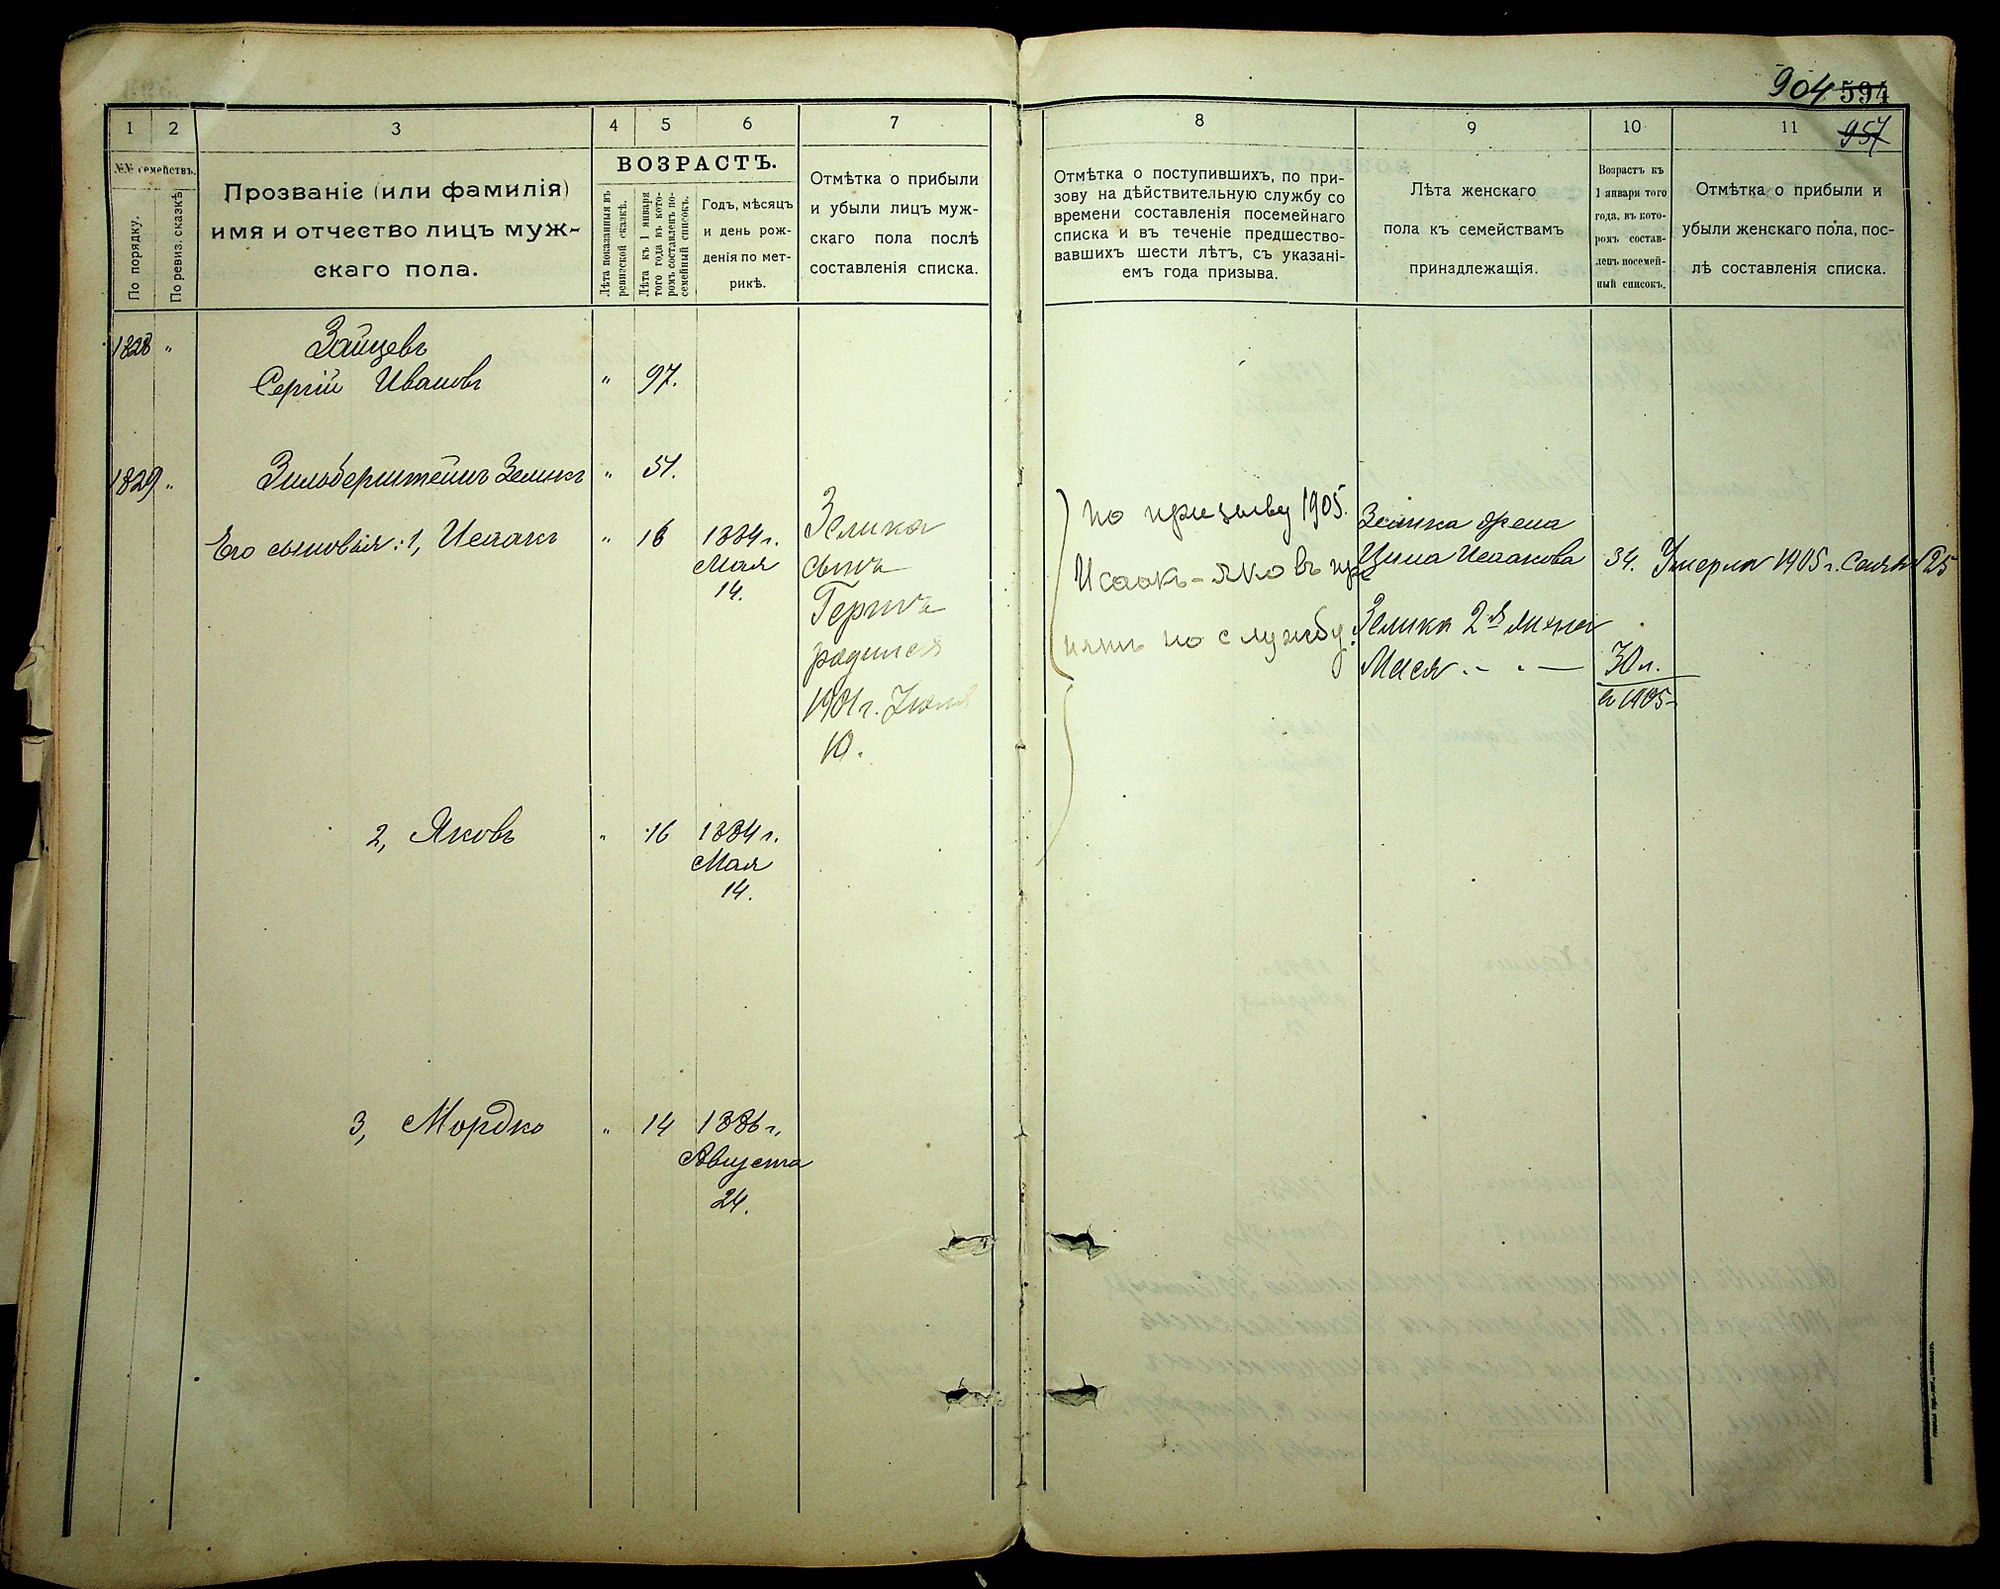 904 594
957
1
2
3
4
5
6
7
8
9
10
11
№№ семействъ.
По порядку.
По ревиз. сказкѣ
Прозваніе (или фамилія)
имя и отчество лицъ муж-
скаго пола.
ВОЗРАСТЪ.
Лѣта показанныя въ
ревизской сказкѣ.
Лѣта къ 1 января
того года въ кото-
ромъ составленъ по-
семейный списокъ.
Годъ, мѣсяцъ
и день рож-
денія по мет-
рикѣ.
Отмѣтка о прибыли
и убыли лицъ муж-
скаго пола послѣ
составленія списка.
Отмѣтка о поступившихъ, по при-
зову на дѣйствительную службу со
времени составленія посемейнаго
списка и въ теченіе предшество-
вавшихъ шести лѣтъ, съ указані-
емъ года призыва.
Лѣта женскаго
пола къ семействамъ
принадлежащія.
Возрастъ къ
1 января того
года, въ кото-
ромъ состав-
ленъ посемей-
ный списокъ.
Отмѣтка о прибыли и
убыли женскаго пола, пос-
лѣ составленія списка.
1828 „ Зайцевъ
Сергій Ивановъ „ 97.
1829 „ Зильберштейнъ Зеликъ „ 51.
Его сыновья: 1, Исаакъ „ 16 1884 г.
Мая
14.
Зелика
сынъ
Герцъ
родился
1901 г. Іюля
10.
по призыву 1905.
Исаакъ-Яковъ при
няты по службу.
Зелика жена
Цина Исаакова 34. Умерла 1905 г.
Зелика 2я жена
Мася - „ - 30 л.
въ 1905-
2, Яковъ „ 16 1884 г.
Мая
14.
3, Мордко „ 14 1886 г.
Августа
24.